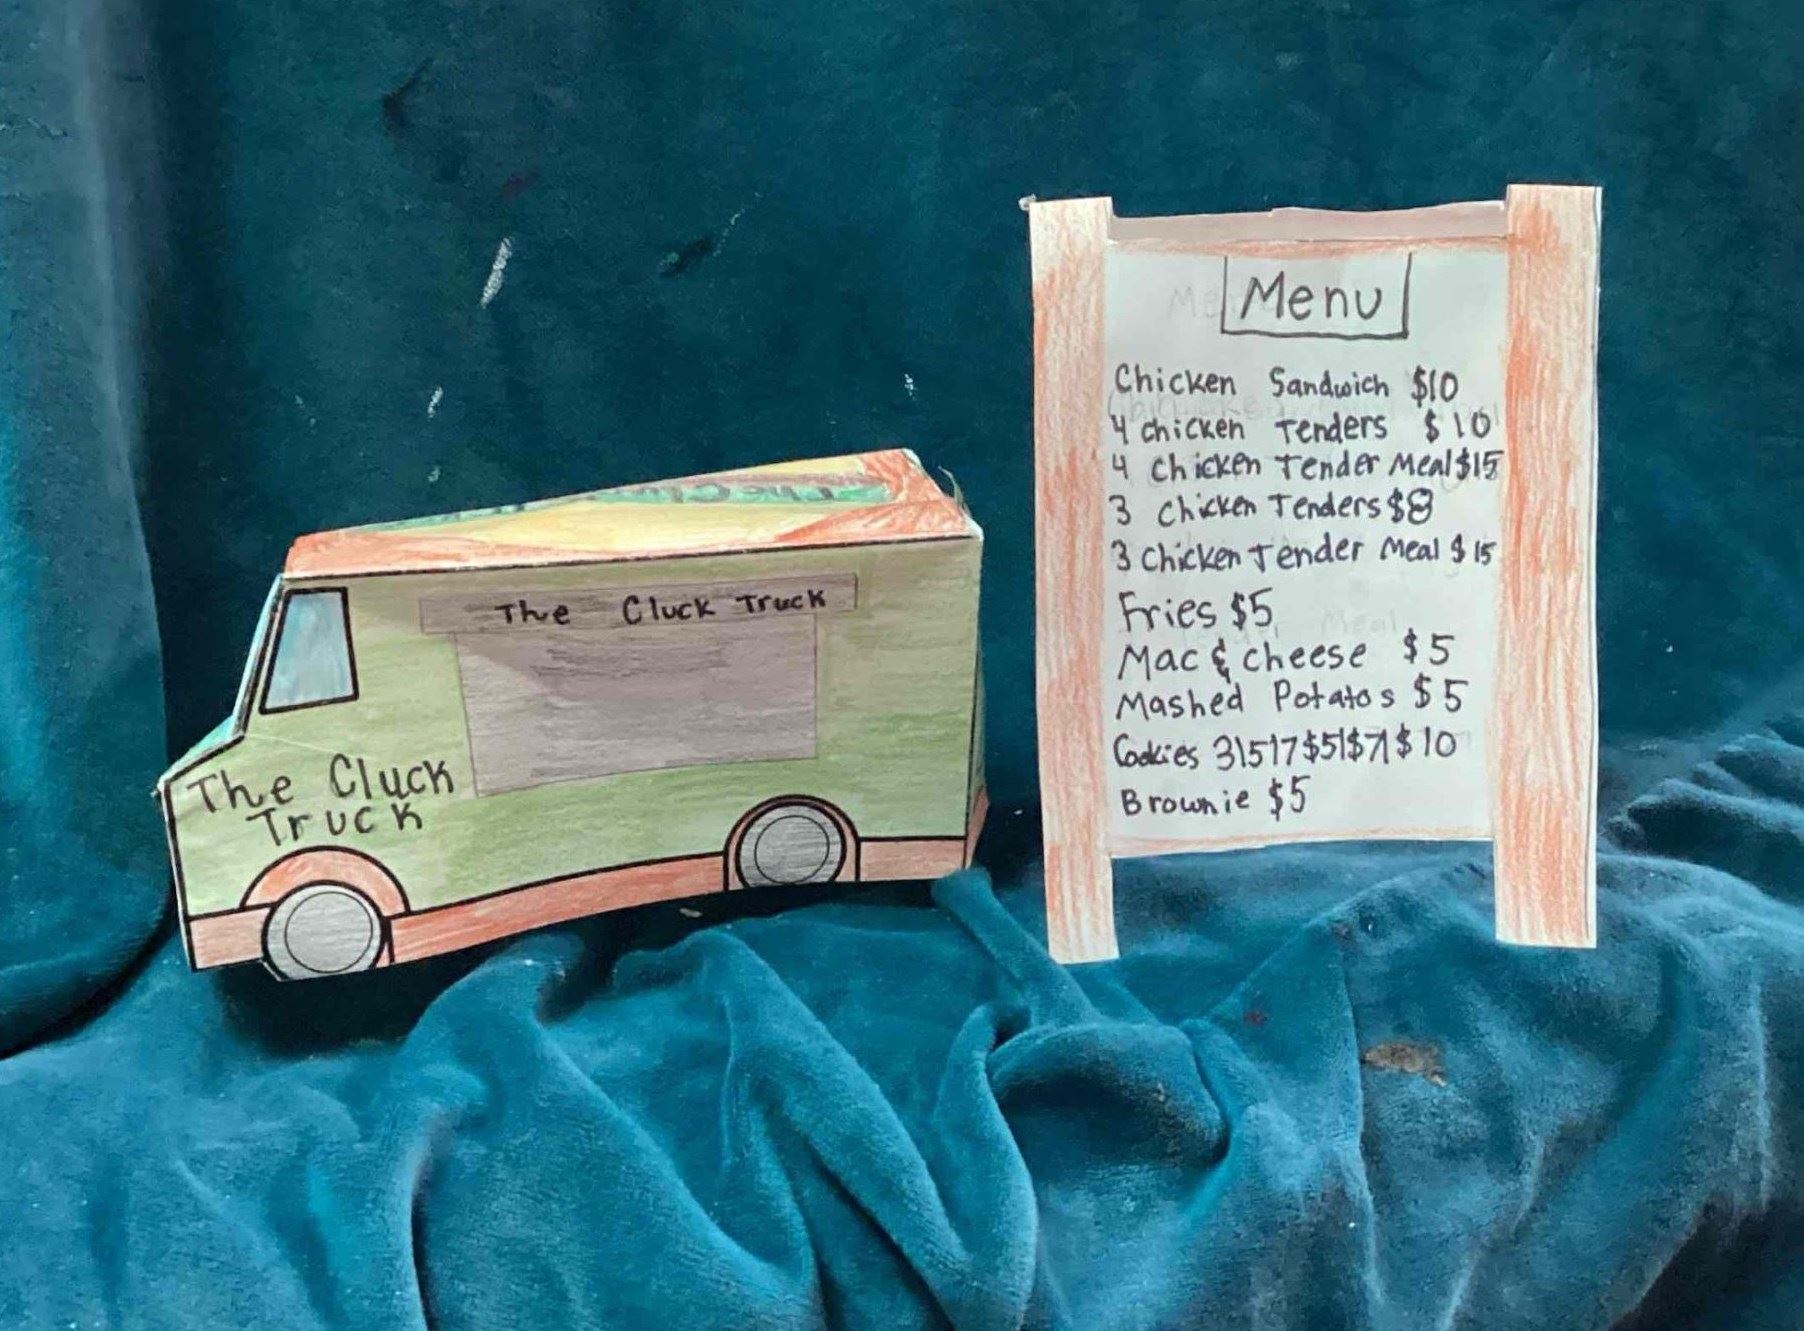 The Cluck Truck
The Cluck
Truck
Menu
Chicken Sandwich $10
4 chicken Tenders $10
4 chicken Tender Meal $15
3 chicken Tenders $8
3 chicken Tender Meal $15
Fries $5
Mac & cheese $5
Mashed Potatos $5
Cookies 3|5|7 $5|$7|$10
Brownie $5